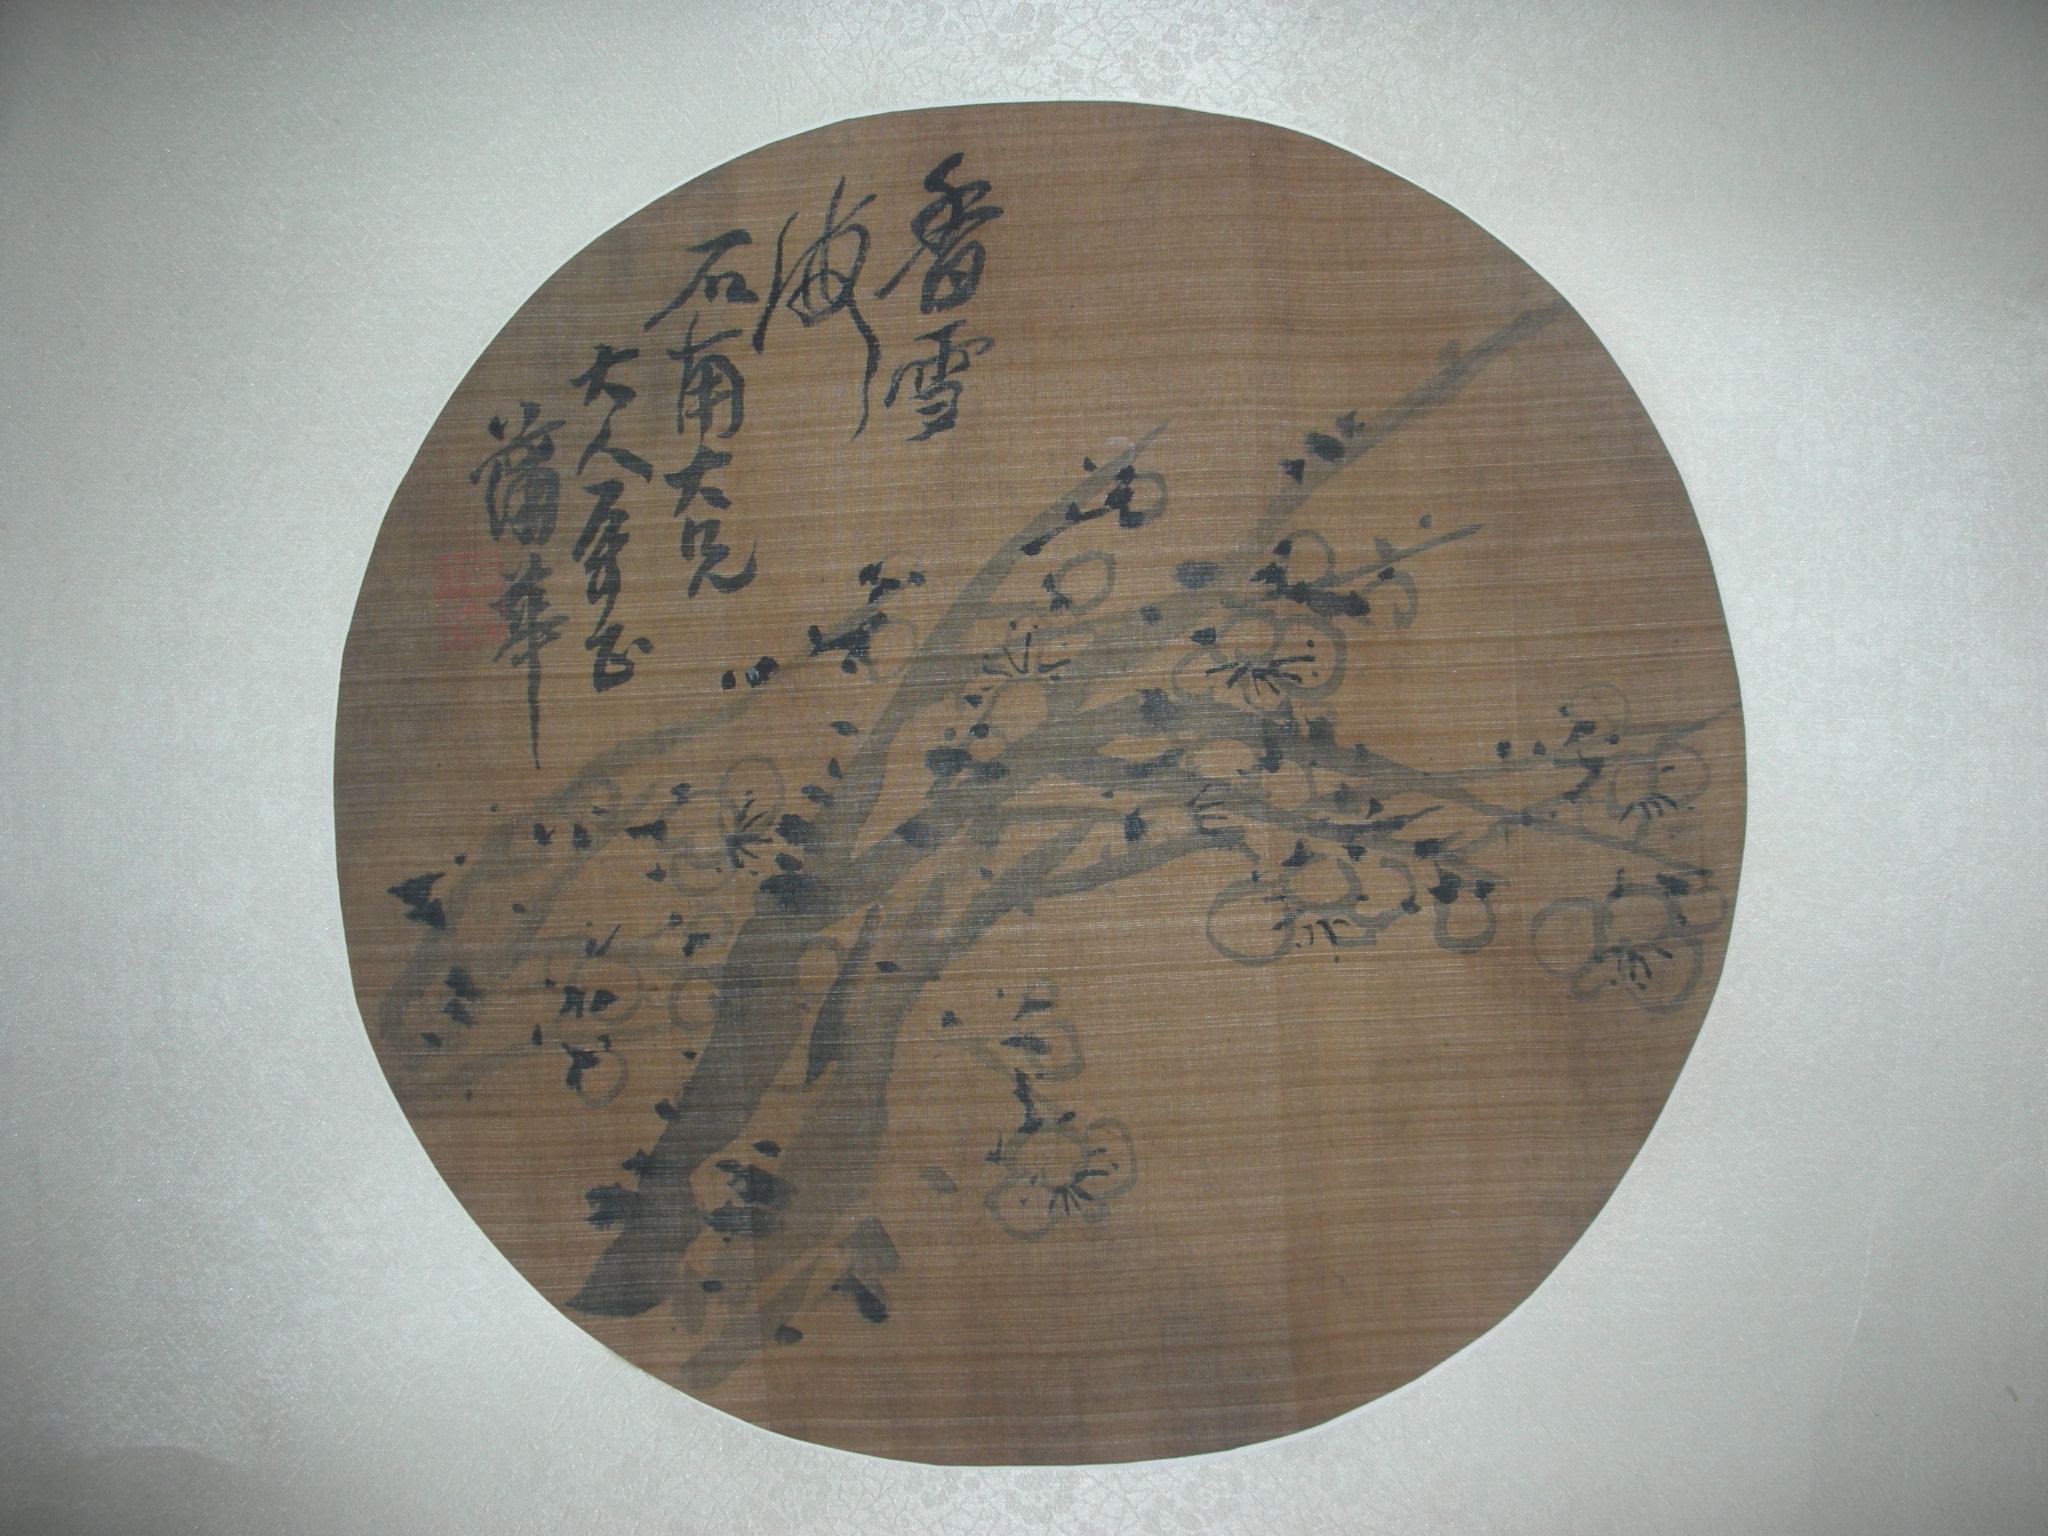 香雪
海
石甫大兄
大人屬正
蒲華